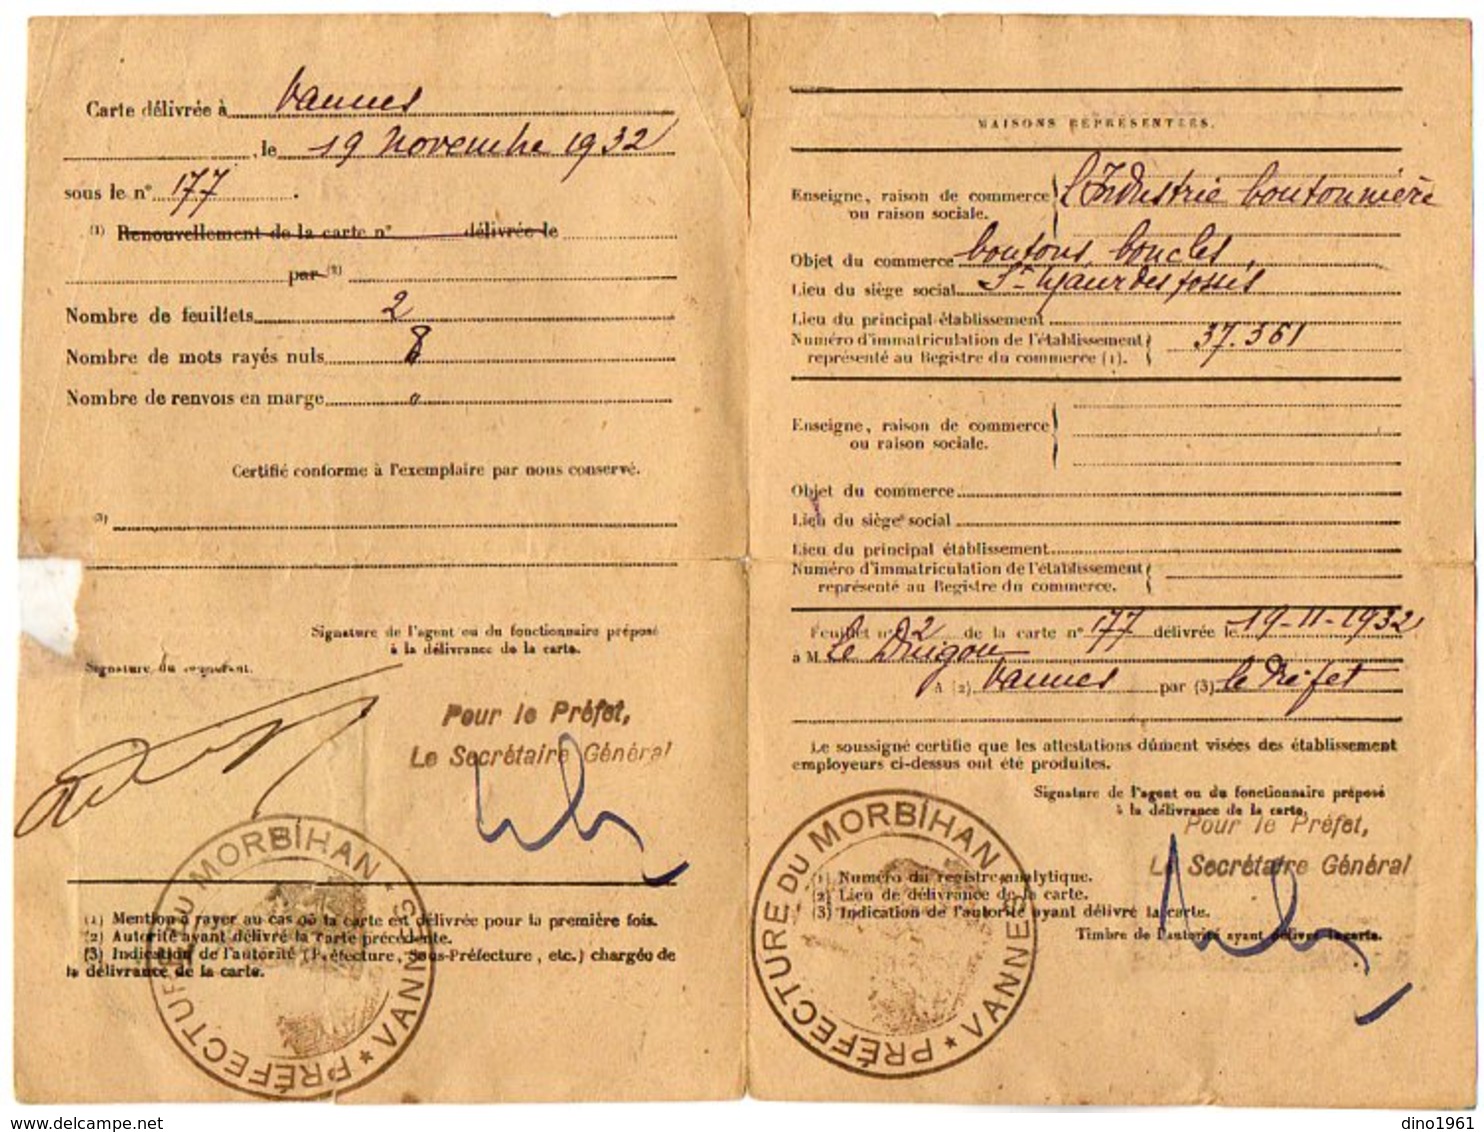 Carte délivrée à Vannes
, le 19 Novembre 1932
sous le n° 177
(1) Renouvellement de la carte n° délivrée le
par (2)
Nombre de feuillets 2
Nombre de mots rayés nuls 8
Nombre de renvois en marge 0
Certifié conforme à l'exemplaire par nous conservé.
(3)
Signature de l'agent ou du fonctionnaire préposé
à la délivrance de la carte.
Signature du requérant.
Pour le Préfet,
Le Secrétaire Général
PRÉFECTURE DU MORBIHAN * VANNES *
(1) Mention à rayer au cas où la carte est délivrée pour la première fois.
(2) Autorité ayant délivré la carte précédente.
(3) Indication de l'autorité (Préfecture, Sous-Préfecture, etc.) chargée de
la délivrance de la carte.
MAISONS REPRÉSENTÉES.
Enseigne, raison de commerce
ou raison sociale.
l'Industrie boutonnière
Objet du commerce boutons, boucles,
Lieu du siège social St Maur des fossés
Lieu du principal établissement
Numéro d'immatriculation de l'établissement
représenté au Registre du commerce (1).
37.361
Enseigne, raison de commerce
ou raison sociale.
Objet du commerce
Lieu du siège social
Lieu du principal établissement
Numéro d'immatriculation de l'établissement
représenté au Registre du commerce.
Feuillet n° 2 de la carte n° 177 délivrée le 19-11-1932
à M. Le
À (2) Vannes par (3) le Préfet
Le soussigné certifie que les attestations dûment visées des établissement
employeurs ci-dessus ont été produites.
Signature de l'agent ou du fonctionnaire préposé
à la délivrance de la carte,
Pour le Préfet,
Le Secrétaire Général
(1) Numéro du registre analytique.
(2) Lieu de délivrance de la carte.
(3) Indication de l'autorité ayant délivré la carte.
Timbre de l'autorité ayant délivré la carte.
PRÉFECTURE DU MORBIHAN * VANNES *
dino1961